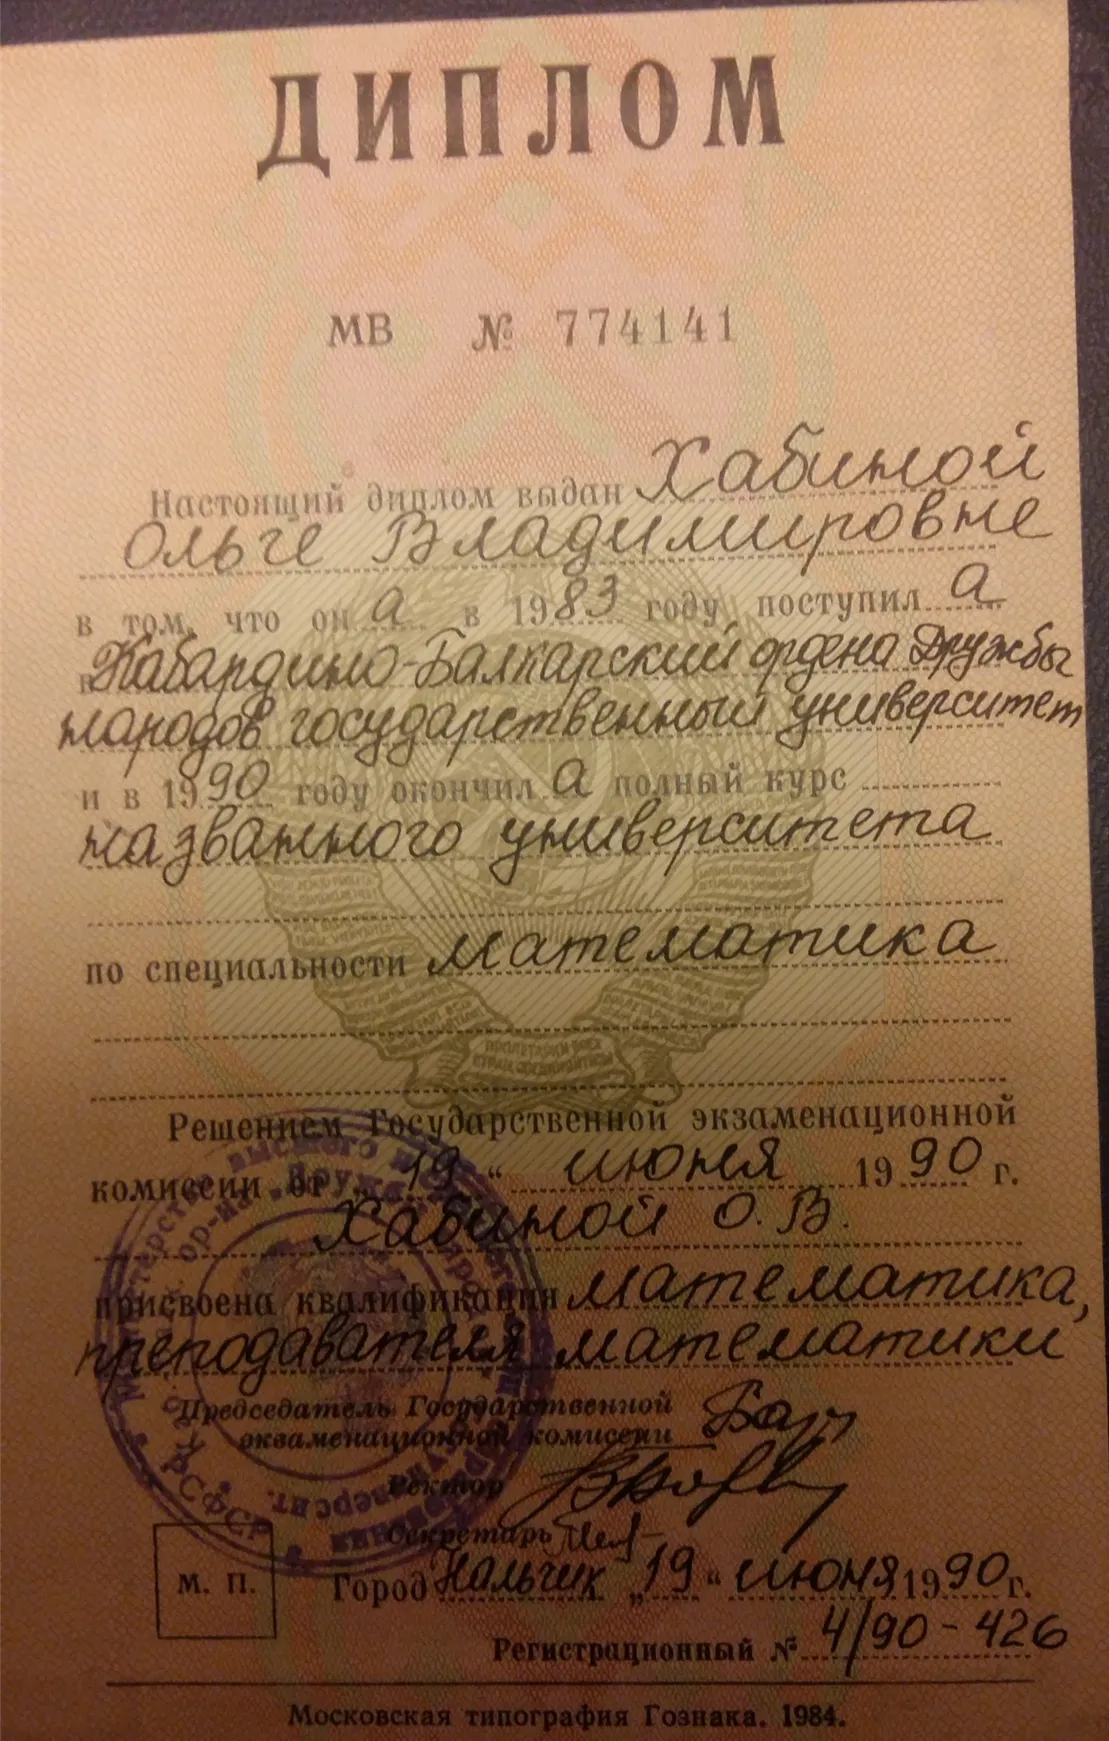 ДИПЛОМ
МВ № 774141
Настоящий диплом выдан Хабиной
Ольге Владимировне
в том, что он а в 1983 году поступил а
в Кабардино-Балкарский ордена Дружбы
народов государственный университет
и в 1990 году окончил а полный курс
названного университета
по специальности математика
Решением Государственной экзаменационной
комиссии от „19“ июня 1990 г.
Хабиной О.В.
присвоена квалификация математика,
преподавателя математики
Председатель Государственной
экзаменационной комиссии
Ректор
Секретарь
М. П.
Город Нальчик „19“ июня 1990 г.
Регистрационный № 4/90-426
Московская типография Гознака. 1984.